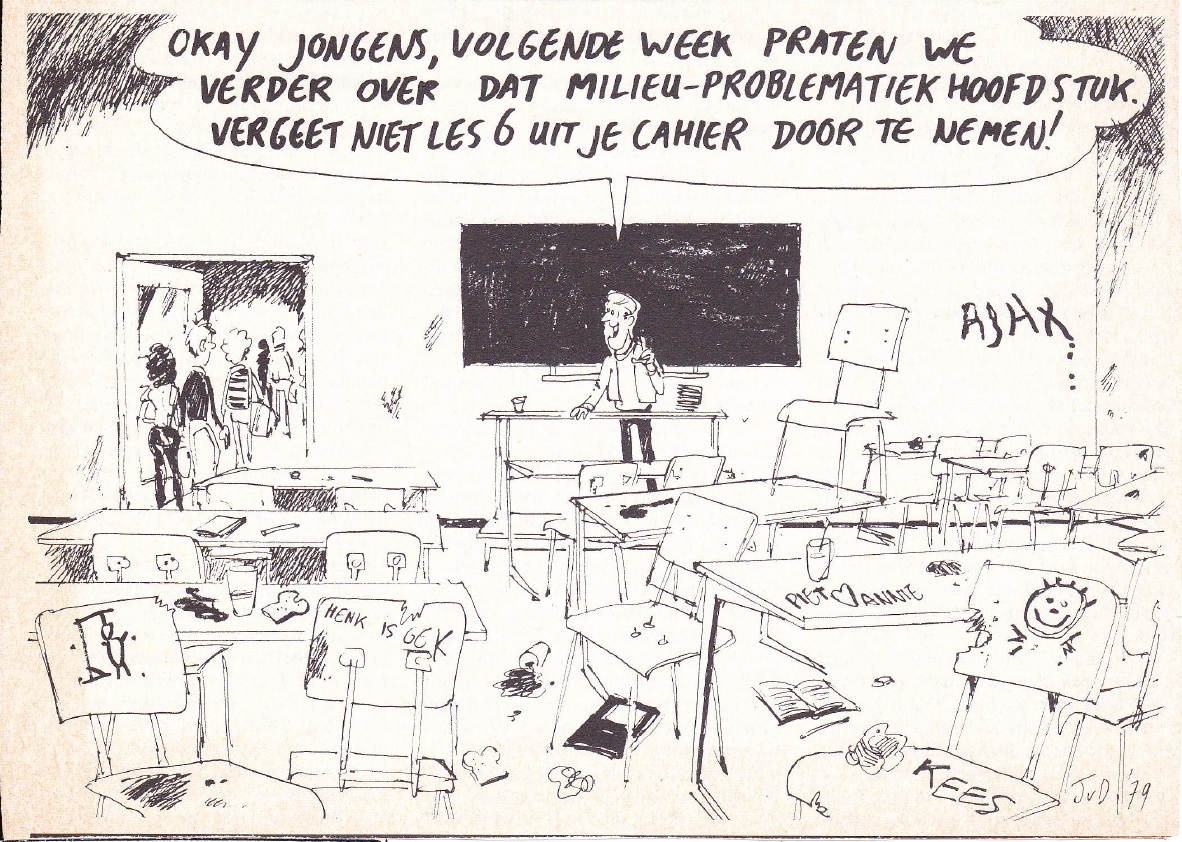 OKAY JONGENS, VOLGENDE WEEK PRATEN WE
VERDER OVER DAT MILIEU-PROBLEMATIEK HOOFDSTUK.
VERGEET NIET LES 6 UIT JE CAHIER DOOR TE NEMEN!
AJAX...
PIET ♡ ANNIE
HENK IS GEK
KEES
JvD '79